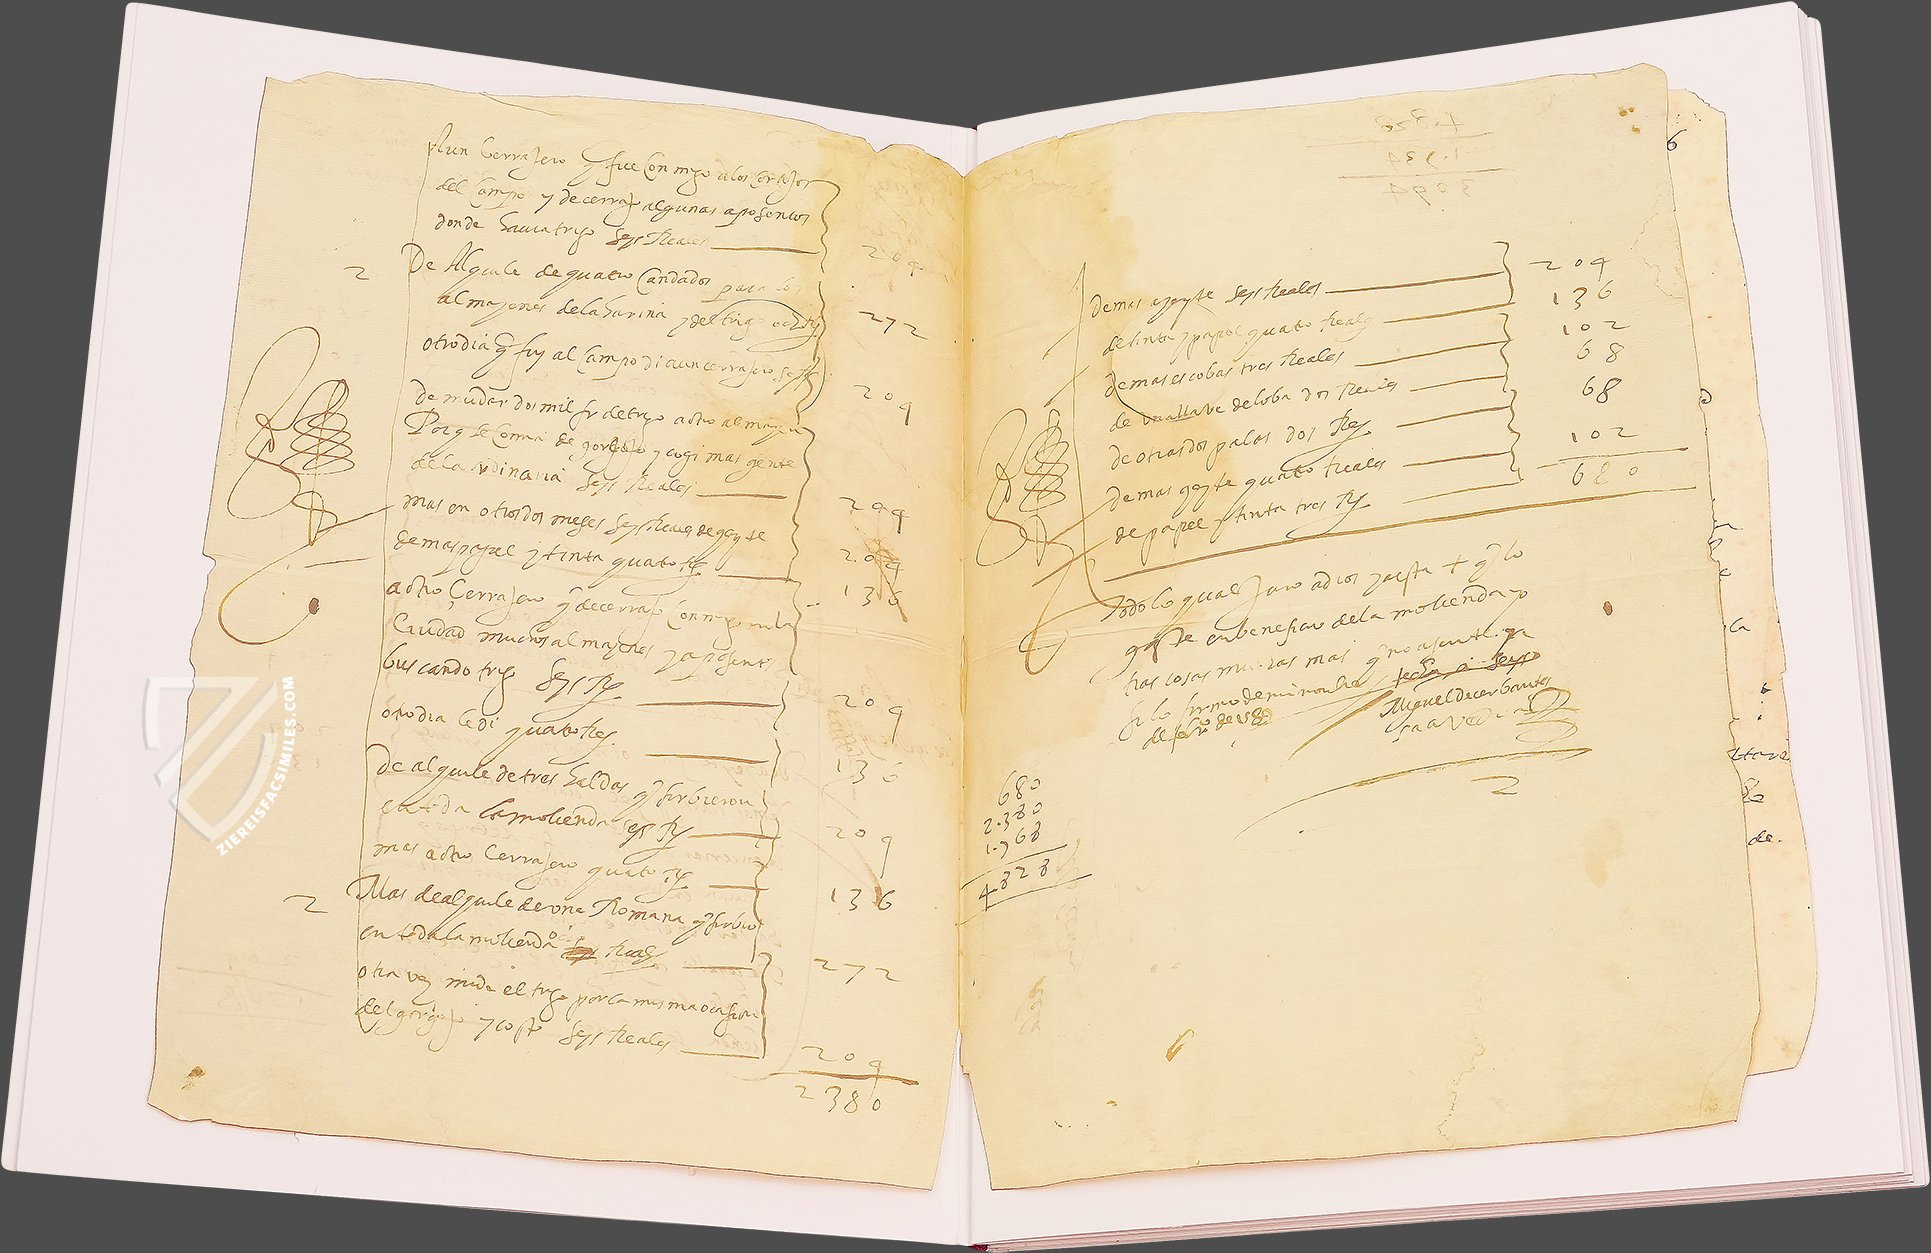 A un cerrajero q fue con migo a los cortijos
del campo y decerrajo algunas aposentos
donde havia trigo seys Reales
204
2
De Alquile de quatro candados para los
almazenes de la harina y del trigo ocho rs
272
otro dia q fuy al campo di a un cerrajero seys rs
204
de mudar dos mil fs de trigo a otro almazen
Porq se comia de gorgojo y cogi mas gente
de la ordinaria seys Reales
204
mas en otros dos meses seys Reales de azeyte
204
de mas papel y tinta quatro rs
136
a otro Cerrajero q decerrajo con migo en la
Ciudad muchos almazenes y aposentos
buscando trigo seys rs
204
otro dia le di quatro rs.
136
De alquile de tres haldas q sirbieron
en toda la molienda seys rs
204
mas a otro Cerrajero quatro rs
136
2
Mas de alquile de una Romana q sirbio
en toda la molienda ocho reales
272
otra vez mude el trigo por la misma ocasion
del gorgojo y costo seys Reales
204
2380
de mas azeyte seys Reales
204
de tinta y papel quatro Reales
136
de mas escobas tres Reales
102
de una llave de loba dos Reales
68
de otras dos palas dos Rs
68
de mas azeyte quatro Reales
de papel y tinta tres rs
102
680
Todo lo qual Juro a dios y a esta + q lo
gaste en beneficio de la molienda y o
tras cosas muchas mas q no asente. ya
si lo firmo de mi nombre
de
Miguel de cerbantes
saavedra
2
680
2.380
1.768
4828
6
la
de.
ZIEREISFACSIMILES.COM